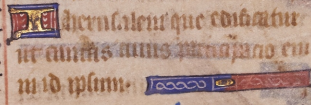 Iherusalem que edificatur
ut civitas cuius participacio eius
in id ipsum